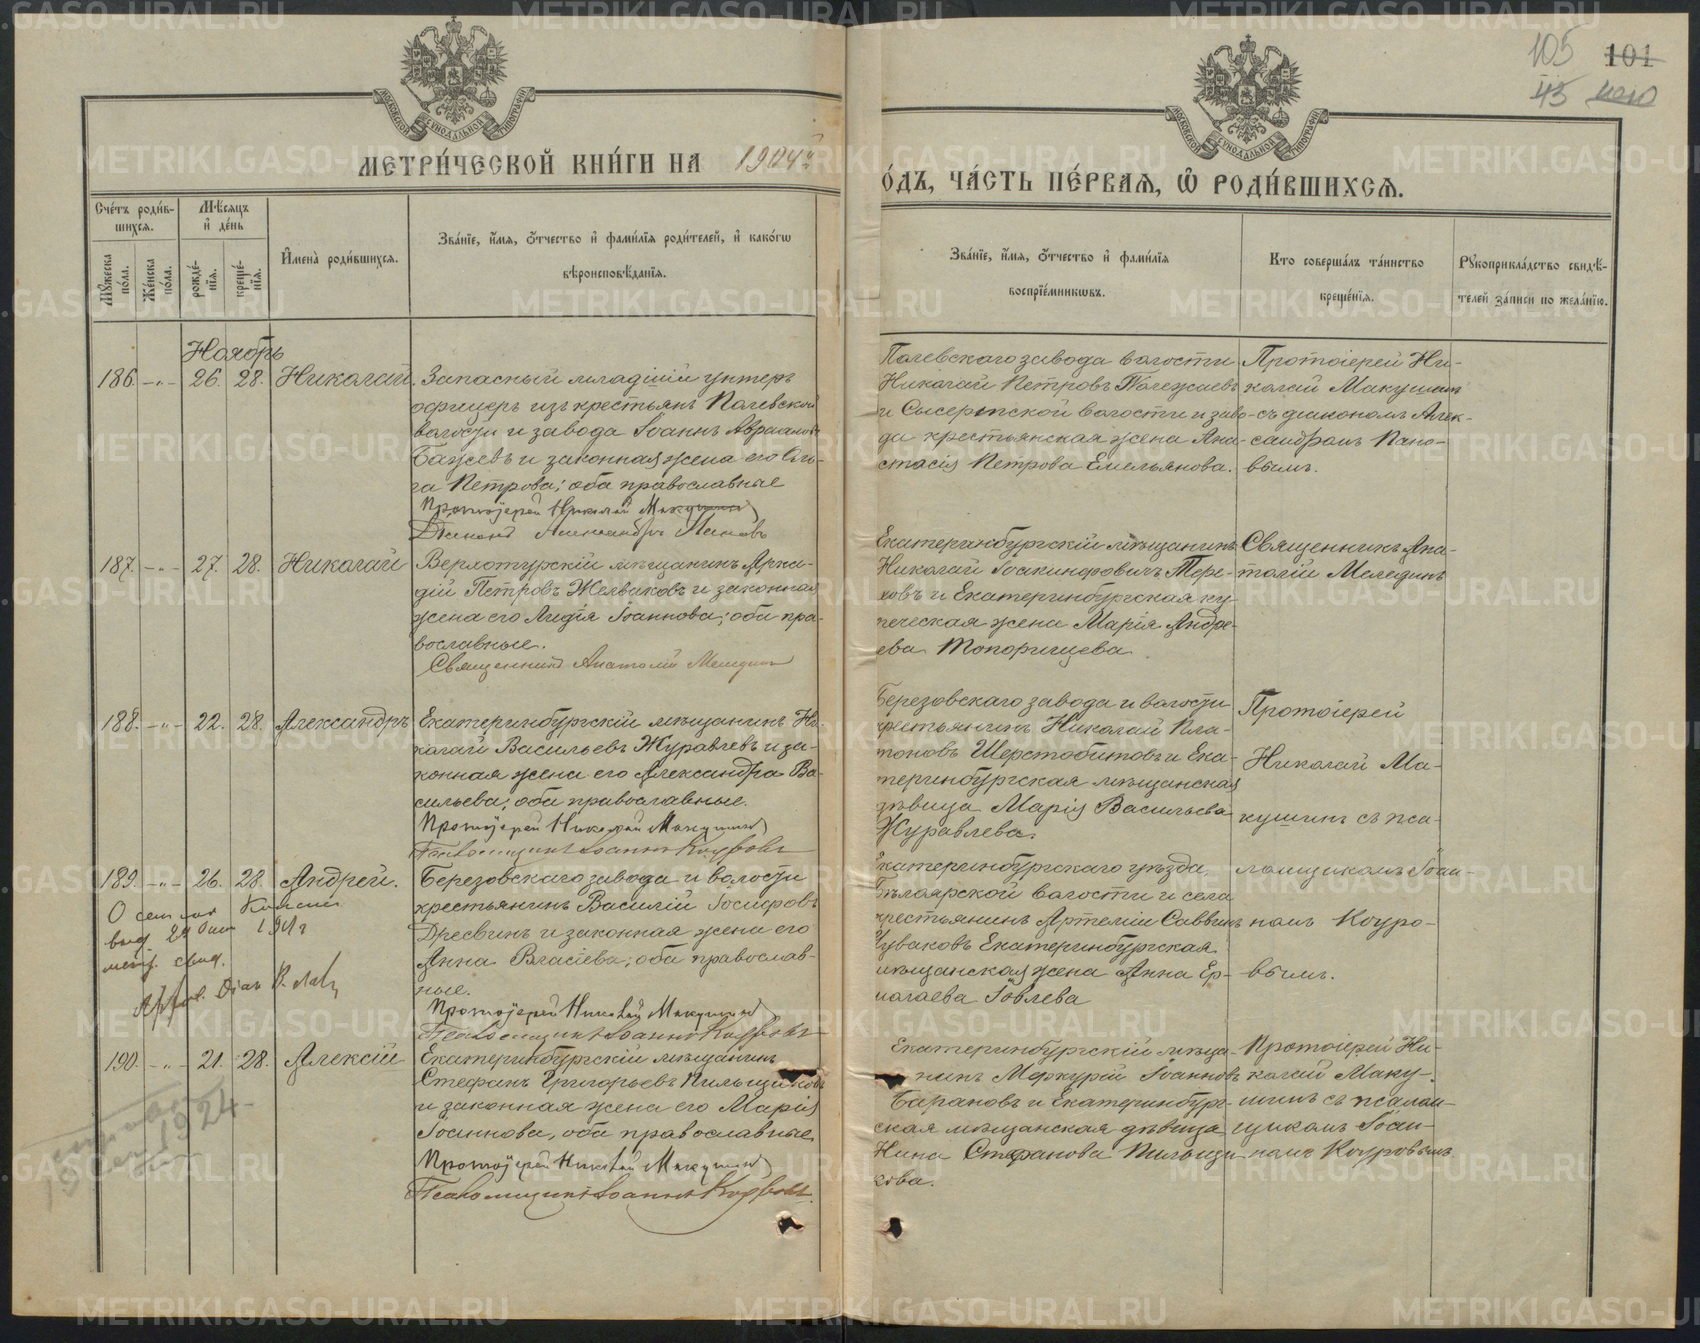 105 101
45
МОСКОВСКОЙ СѴНОДАЛЬНОЙ ТИПОГРАФІИ
МОСКОВСКОЙ СѴНОДАЛЬНОЙ ТИПОГРАФІИ
МЕТРИ́ЧЕСКОЙ КНИ́ГИ НА 1904й
О́ДЪ, ЧА́СТЬ ПЕ́РВАЯ, Ѽ РОДИ́ВШИХСЯ.
Сче́тъ роди́в-
шихся.
Мѣ́сяцъ
и҆ де́нь
Мꙋ́жеска по́ла.
Же́нска по́ла.
рожде́-
нїя.
креще́-
нїя.
И҆мена̀ роди́вшихся.
Зва́нїе, и҆́мя, о҆́тчество и҆ фами́лїя роди́телей, и҆ како́гѡ
вѣроисповѣ́данїя.
Зва́нїе, и҆́мя, о҆́тчество и҆ фами́лїя
воспрїе́мникѡвъ.
Кто соверша́лъ та́инство
креще́нїя.
Рꙋкоприкла́дство свидѣ́-
телей за́писи по жела́нїю.
Ноябрь
186. -"- 26. 28. Николай.
Запасный младшій унтеръ
офицеръ изъ крестьянъ Полевской
волости и завода Іоаннъ Авраамовъ
Бажевъ и законная жена его Оль-
га Петрова; оба православные
Протоіерей Николай Макушинъ
Діаконъ Александръ Пановъ
Полевскаго завода волости
Николай Петровъ Полежаевъ
и Сысертской волости и заво-
да крестьянская жена Ана-
стасія Петрова Емельянова.
Протоіерей Ни-
колай Макушинъ
съ діакономъ Алек-
сандромъ Пано-
вымъ.
187. -"- 27. 28. Николай
Верхотурскій мѣщанинъ Арка-
дій Петровъ Желваковъ и законная
жена его Лидія Іоаннова; оба пра-
вославные.
Священникъ Анатолій Меледин
Екатеринбургскій мѣщанинъ
Николай Іоакинфовичъ Тере-
ховъ и Екатеринбургская ку-
печеская жена Марія Андре-
ева Топорищева
Священникъ Ана-
толій Мелединъ
188. -"- 22. 28. Александръ
Екатеринбургскій мѣщанинъ Ни-
колай Васильевъ Журавлевъ и за-
конная жена его Александра Ва-
сильева; оба православные.
Протоіерей Николай Макушинъ
Псаломщикъ Іоаннъ Коуровъ
Березовскаго завода и волости
крестьянинъ Николай Пла-
тоновъ Шерстобитовъ и Ека-
теринбургская мѣщанская
дѣвица Марія Васильева
Журавлева.
Протоіерей
Николай Ма-
кушинъ съ пса-
189. -"- 26. 28. Андрей.
О сем
Березовскаго завода и волости
крестьянинъ Василій Іосифовъ
Дресвинъ и законная жена его
Анна Власіева; оба православ-
ные.
Протоіерей Николай Макушинъ
Псаломщикъ Іоаннъ Коуровъ
Екатеринбургскаго уѣзда,
Бѣлоярской волости и села
крестьянинъ Артемій Саввинъ
Чуваковъ Екатеринбургская
мѣщанская жена Анна Ер-
молаева Іовлева
ломщикомъ Іоан-
номъ Коуро-
вымъ.
190. -"- 21. 28. Алексій
1924
Екатеринбургскій мѣщанинъ
Стефанъ Григорьевъ Пильщиковъ
и законная жена его Марія
Іоаннова, оба православные
Протоіерей Николай Макушинъ
Псаломщикъ Іоаннъ Коуровъ.
Екатеринбургскій мѣща-
нинъ Меркурій Іоанновъ
Барановъ и Екатеринбург-
ская мѣщанская дѣвица
Нина Стефанова Пильщи-
кова.
Протоіерей Ни-
колай Маку-
шинъ съ псалом-
щикомъ Іоан-
номъ Коуровымъ
METRIKI.GASO-URAL.RU